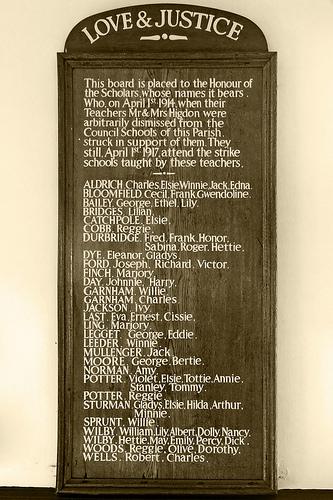 LOVE & JUSTICE
This board is placed to the Honour of
the Scholars, whose names it bears.
Who, on April 1st 1914, when their
Teachers Mr & Mrs Higdon were
arbitrarily dismissed from the
Council Schools of this Parish,
struck in support of them. They
still, April 1st 1917, attend the strike
schools taught by these teachers.
ALDRICH Charles, Elsie, Winnie, Jack, Edna.
BLOOMFIELD Cecil, Frank, Gwendoline.
BAILEY, George, Ethel, Lily.
BRIDGES, Lilian.
CATCHPOLE, Elsie.
COBB, Reggie.
DURBRIDGE, Fred, Frank, Honor,
Sabina, Roger, Hettie.
DYE, Eleanor, Gladys.
FORD, Joseph, Richard, Victor.
FINCH, Marjory.
DAY, Johnnie, Harry.
GARNHAM, Willie.
GARNHAM, Charles.
JACKSON, Ivy.
LAST, Eva, Ernest, Cissie.
LING, Marjory.
LEGGET, George, Eddie.
LEEDER, Winnie.
MULLENGER, Jack.
MOORE, George, Bertie.
NORMAN, Amy.
POTTER, Violet, Elsie, Tottie, Annie,
Stanley, Tommy.
POTTER, Reggie.
STURMAN, Gladys, Elsie, Hilda, Arthur,
Minnie.
SPRUNT, Willie.
WILBY, William, Lily, Albert, Dolly, Nancy.
WILBY, Hettie, May, Emily, Percy, Dick.
WOODS, Reggie, Olive, Dorothy.
WELLS, Robert, Charles.